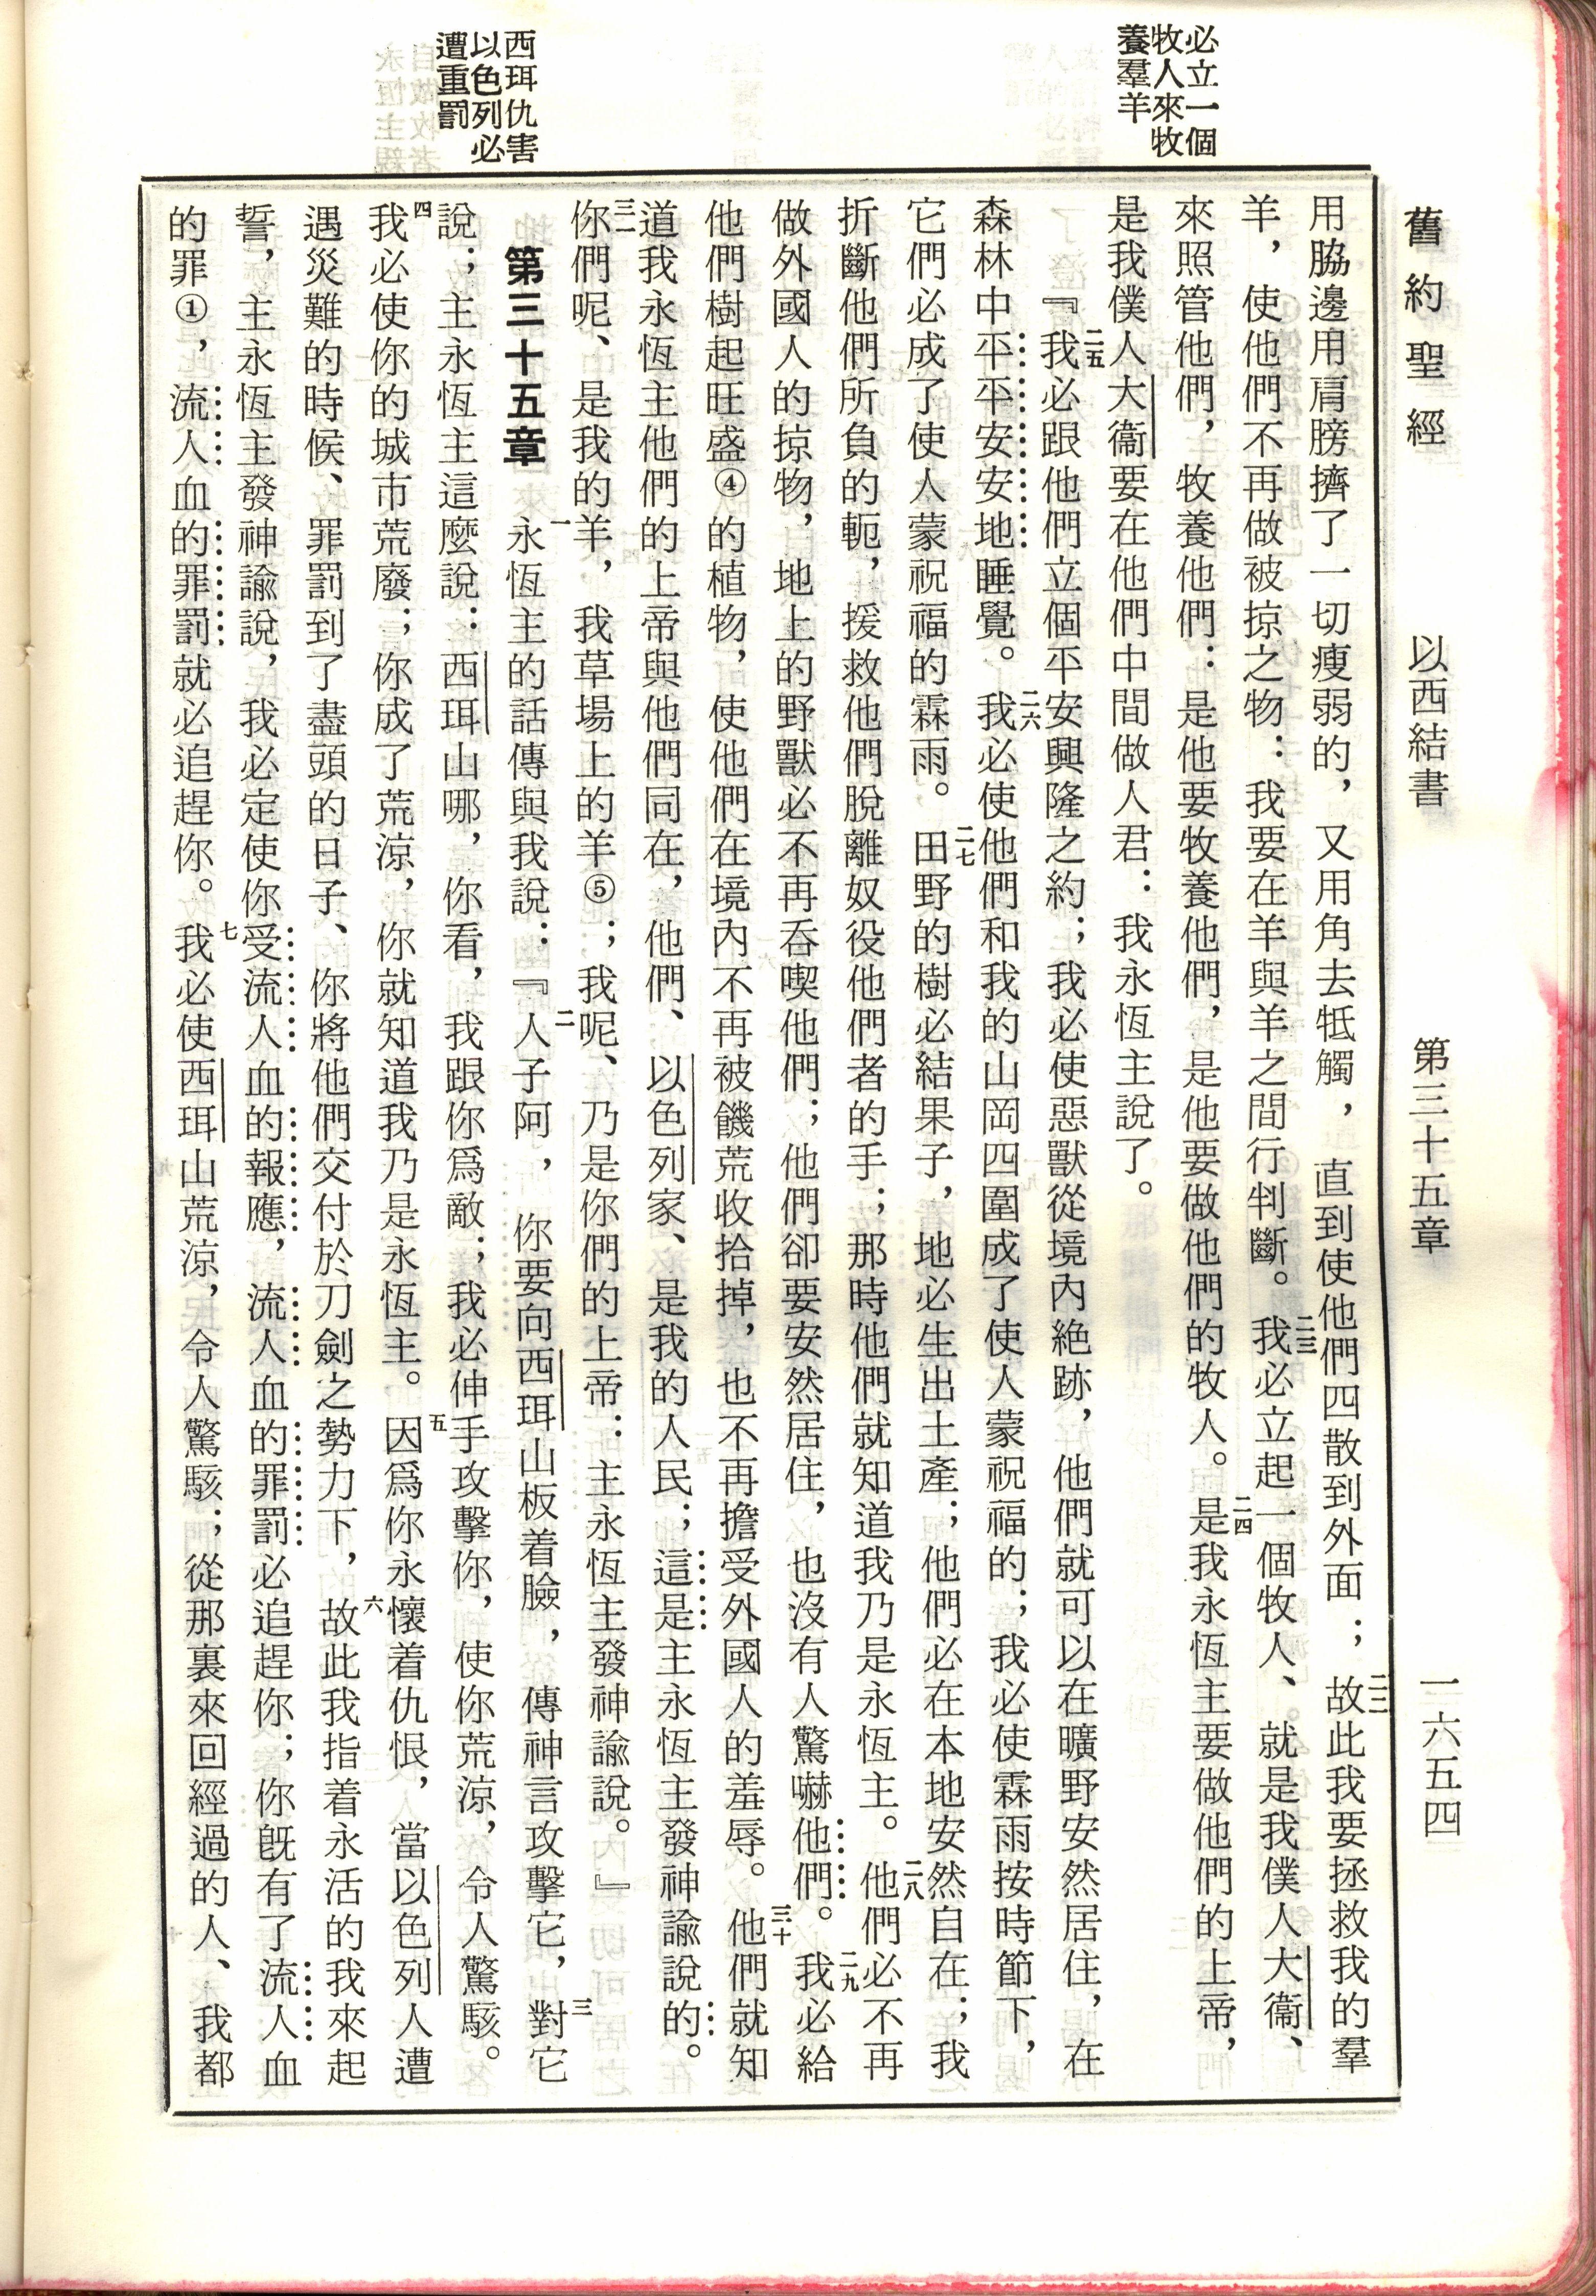 舊約聖經　以西結書　第三十五章　一六五四
必立一個
牧人來牧
養羣羊
西珥仇害
以色列必
遭重罰
用脇邊用肩膀擠了一切瘦弱的，又用角去牴觸，直到使他們四散到外面；二二故此我要拯救我的羣
羊，使他們不再做被掠之物：我要在羊與羊之間行判斷。二三我必立起一個牧人、就是我僕人大衞、
來照管他們，牧養他們：是他要牧養他們，是他要做他們的牧人。二四是我永恆主要做他們的上帝，
是我僕人大衞要在他們中間做人君：我永恆主說了。
『二五我必跟他們立個平安興隆之約；我必使惡獸從境內絶跡，他們就可以在曠野安然居住，在
森林中平平安安地睡覺。二六我必使他們和我的山岡四圍成了使人蒙祝福的；我必使霖雨按時節下，
它們必成了使人蒙祝福的霖雨。二七田野的樹必結果子，地必生出土產；他們必在本地安然自在；我
折斷他們所負的軛，援救他們脫離奴役他們者的手；那時他們就知道我乃是永恆主。二八他們必不再
做外國人的掠物，地上的野獸必不再吞喫他們；他們卻要安然居住，也沒有人驚嚇他們。二九我必給
他們樹起旺盛④的植物，使他們在境內不再被饑荒收拾掉，也不再擔受外國人的羞辱。三十他們就知
道我永恆主他們的上帝與他們同在，他們、以色列家、是我的人民；這是主永恆主發神諭說的。
三一你們呢、是我的羊，我草場上的羊⑤；我呢、乃是你們的上帝：主永恆主發神諭說。』
第三十五章　一永恆主的話傳與我說：二『人子阿，你要向西珥山板着臉，傳神言攻擊它，三對它
說；主永恆主這麼說：西珥山哪，你看，我跟你爲敵；我必伸手攻擊你，使你荒涼，令人驚駭。
四我必使你的城市荒廢；你成了荒涼，你就知道我乃是永恆主。五因爲你永懷着仇恨，當以色列人遭
遇災難的時候、罪罰到了盡頭的日子、你將他們交付於刀劍之勢力下，六故此我指着永活的我來起
誓，主永恆主發神諭說，我必定使你受流人血的報應，流人血的罪罰必追趕你；你旣有了流人血
的罪①，流人血的罪罰就必追趕你。七我必使西珥山荒涼，令人驚駭；從那裏來回經過的人、我都